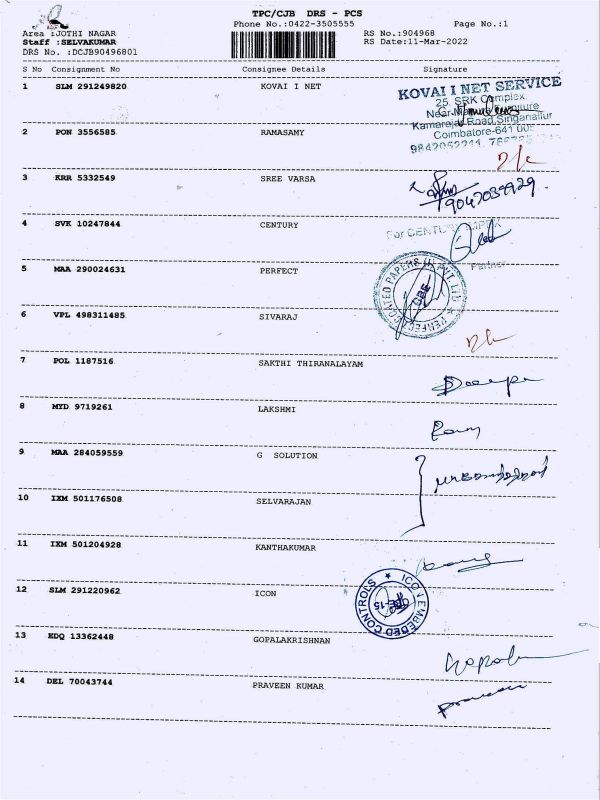 TPC/CJB DRS - PCS
Phone No.:0422-3505555 Page No.:1
Area :JOTHI NAGAR RS No.:904968
Staff :SELVAKUMAR RS Date:11-Mar-2022
DRS No. :DCJB90496801
S No Consignment No Consignee Details Signature
1 SLM 291249820 KOVAI I NET
KOVAI I NET SERVICE
25, SRK Complex,
Kamarajar Road, Singanallur
Coimbatore-641 005
2 PON 3556585 RAMASAMY
3 KRR 5332549 SREE VARSA
4 SVK 10247844 CENTURY
For CENTURY
Partner
5 MAA 290024631 PERFECT
CBE
6 VPL 498311485 SIVARAJ
7 POL 1187516 SAKTHI THIRANALAYAM
8 MYD 9719261 LAKSHMI
9 MAA 284059559 G SOLUTION
10 IXM 501176508 SELVARAJAN
11 IXM 501204928 KANTHAKUMAR
12 SLM 291220962 ICON
ICON EMBEDED CONTROLS
13 EDQ 13362448 GOPALAKRISHNAN
14 DEL 70043744 PRAVEEN KUMAR
praveen